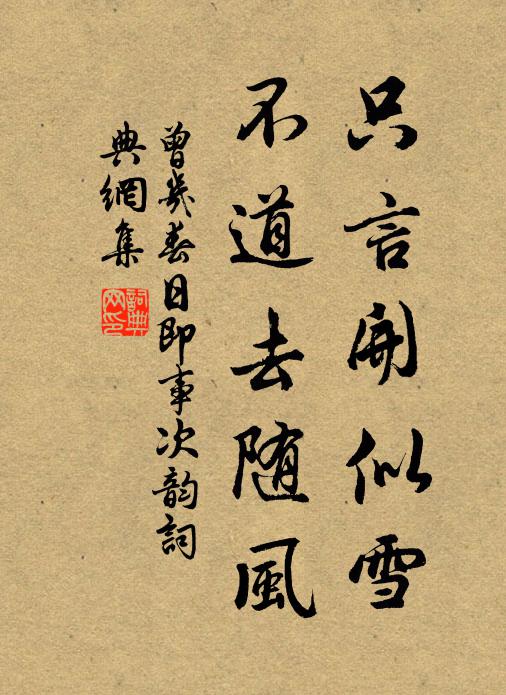 只言開似雪
不道去随風
曾幾春日即事次韵詞
典網集
詞典網印